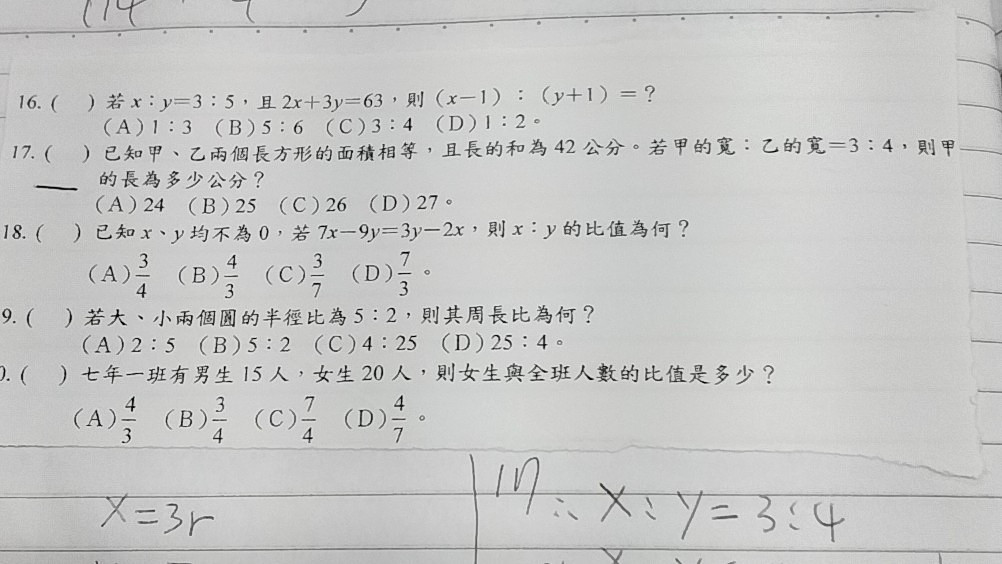 114
16. (　) 若 x：y＝3：5，且 2x＋3y＝63，則（x－1）：（y＋1）＝？
(A) 1：3 (B) 5：6 (C) 3：4 (D) 1：2。
17. (　) 已知甲、乙兩個長方形的面積相等，且長的和為 42 公分。若甲的寬：乙的寬＝3：4，則甲
的長為多少公分？
(A) 24 (B) 25 (C) 26 (D) 27。
18. (　) 已知 x、y 均不為 0，若 7x－9y＝3y－2x，則 x：y 的比值為何？
(A) 3/4 (B) 4/3 (C) 3/7 (D) 7/3。
9. (　) 若大、小兩個圓的半徑比為 5：2，則其周長比為何？
(A) 2：5 (B) 5：2 (C) 4：25 (D) 25：4。
0. (　) 七年一班有男生 15 人，女生 20 人，則女生與全班人數的比值是多少？
(A) 4/3 (B) 3/4 (C) 7/4 (D) 4/7。
X=3r
17 ∴ X:Y=3:4